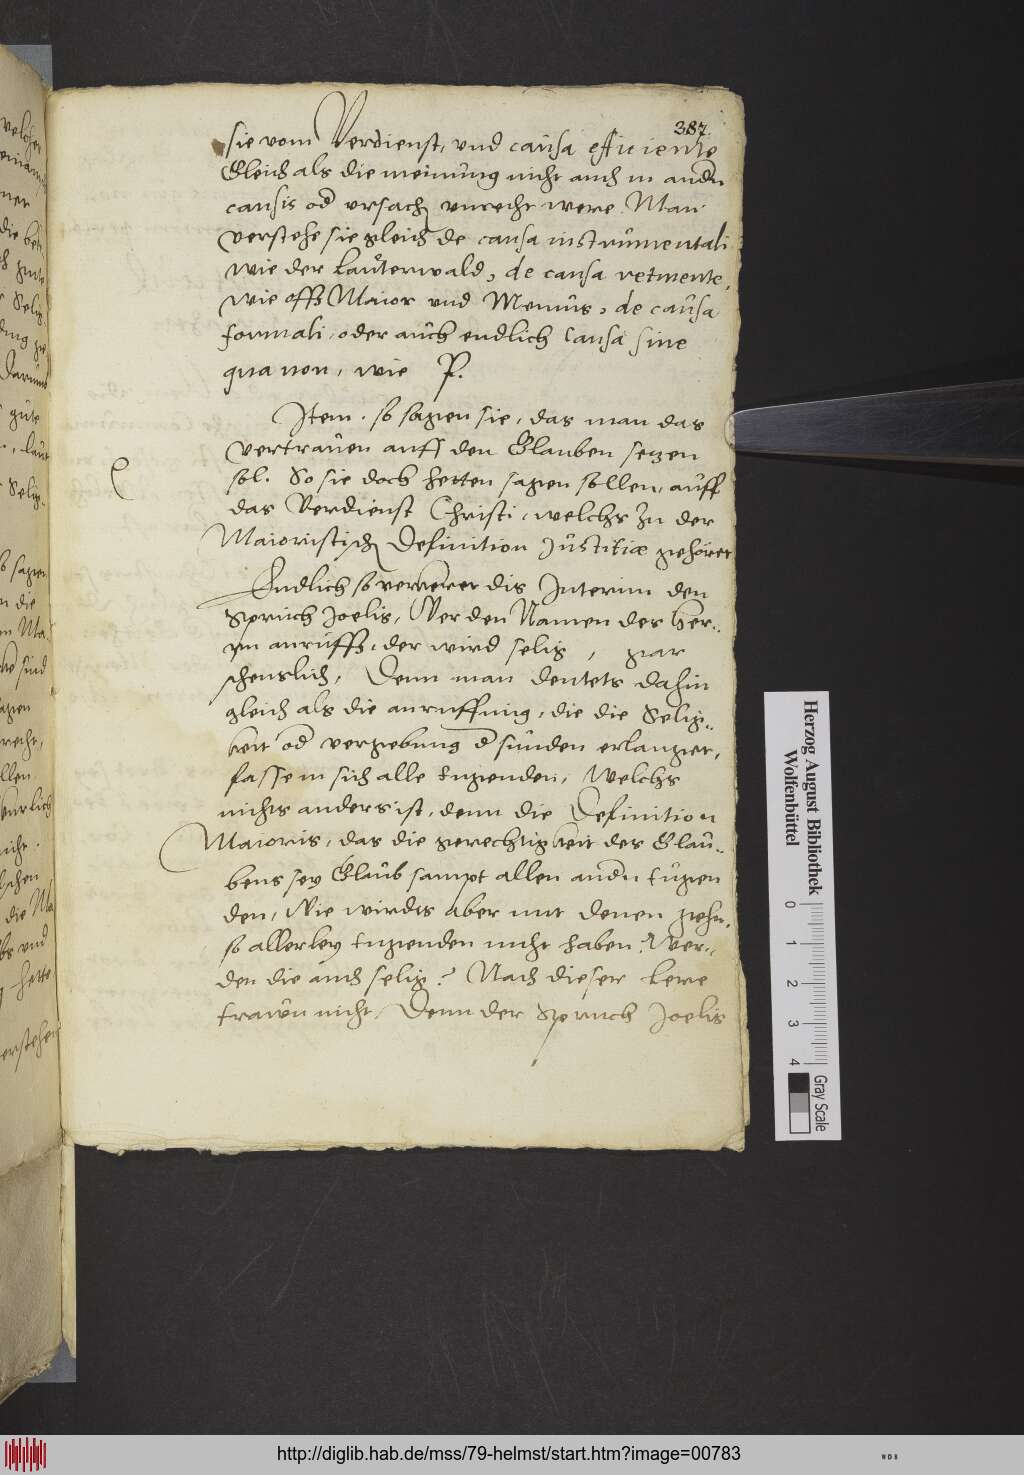 387.
sie vom Verdienst, und causa efficiente
Gleich als die meinung nicht auch in andn
causis od ursach unrecht were. Man
verstehe sie gleich de causa instrumentali
wie der Lauterwald, de causa
wie offt Maior und Menius, de causa
formali, oder auch endlich Causa sine
qua non, wie P.
Item. so sagen sie, das man das
vertrauen auff den Glauben setzen
sol. So sie doch hetten sagen sollen, auff
das Verdienst Christi, welchs zu der
Maioristisch Definition Justitiæ gehöret
Endlich so dis Interim den
Spruch Joelis, Wer den Namen des Her-
rn anrufft, der wird selig, gar
scheuslich, Denn man deutets dahin
gleich als die anruffung, die die Selig-
keit od vergebung d sünden erlanget,
fasse in sich alle tugenden, Welchs
nichts anders ist, denn die Definition
Maioris, das die gerechtigkeit des Glau-
bens sey Glaub sampt allen andn tugen
den, Wie wirdts aber mit denen gehn,
so allerley tugenden nicht haben? Wer-
den die auch selig? Nach dieser Lere
traun nicht, Denn der Spruch Joelis
Herzog August Bibliothek
Wolfenbüttel
0 1 2 3 4
Gray Scale
http://diglib.hab.de/mss/79-helmst/start.htm?image=00783